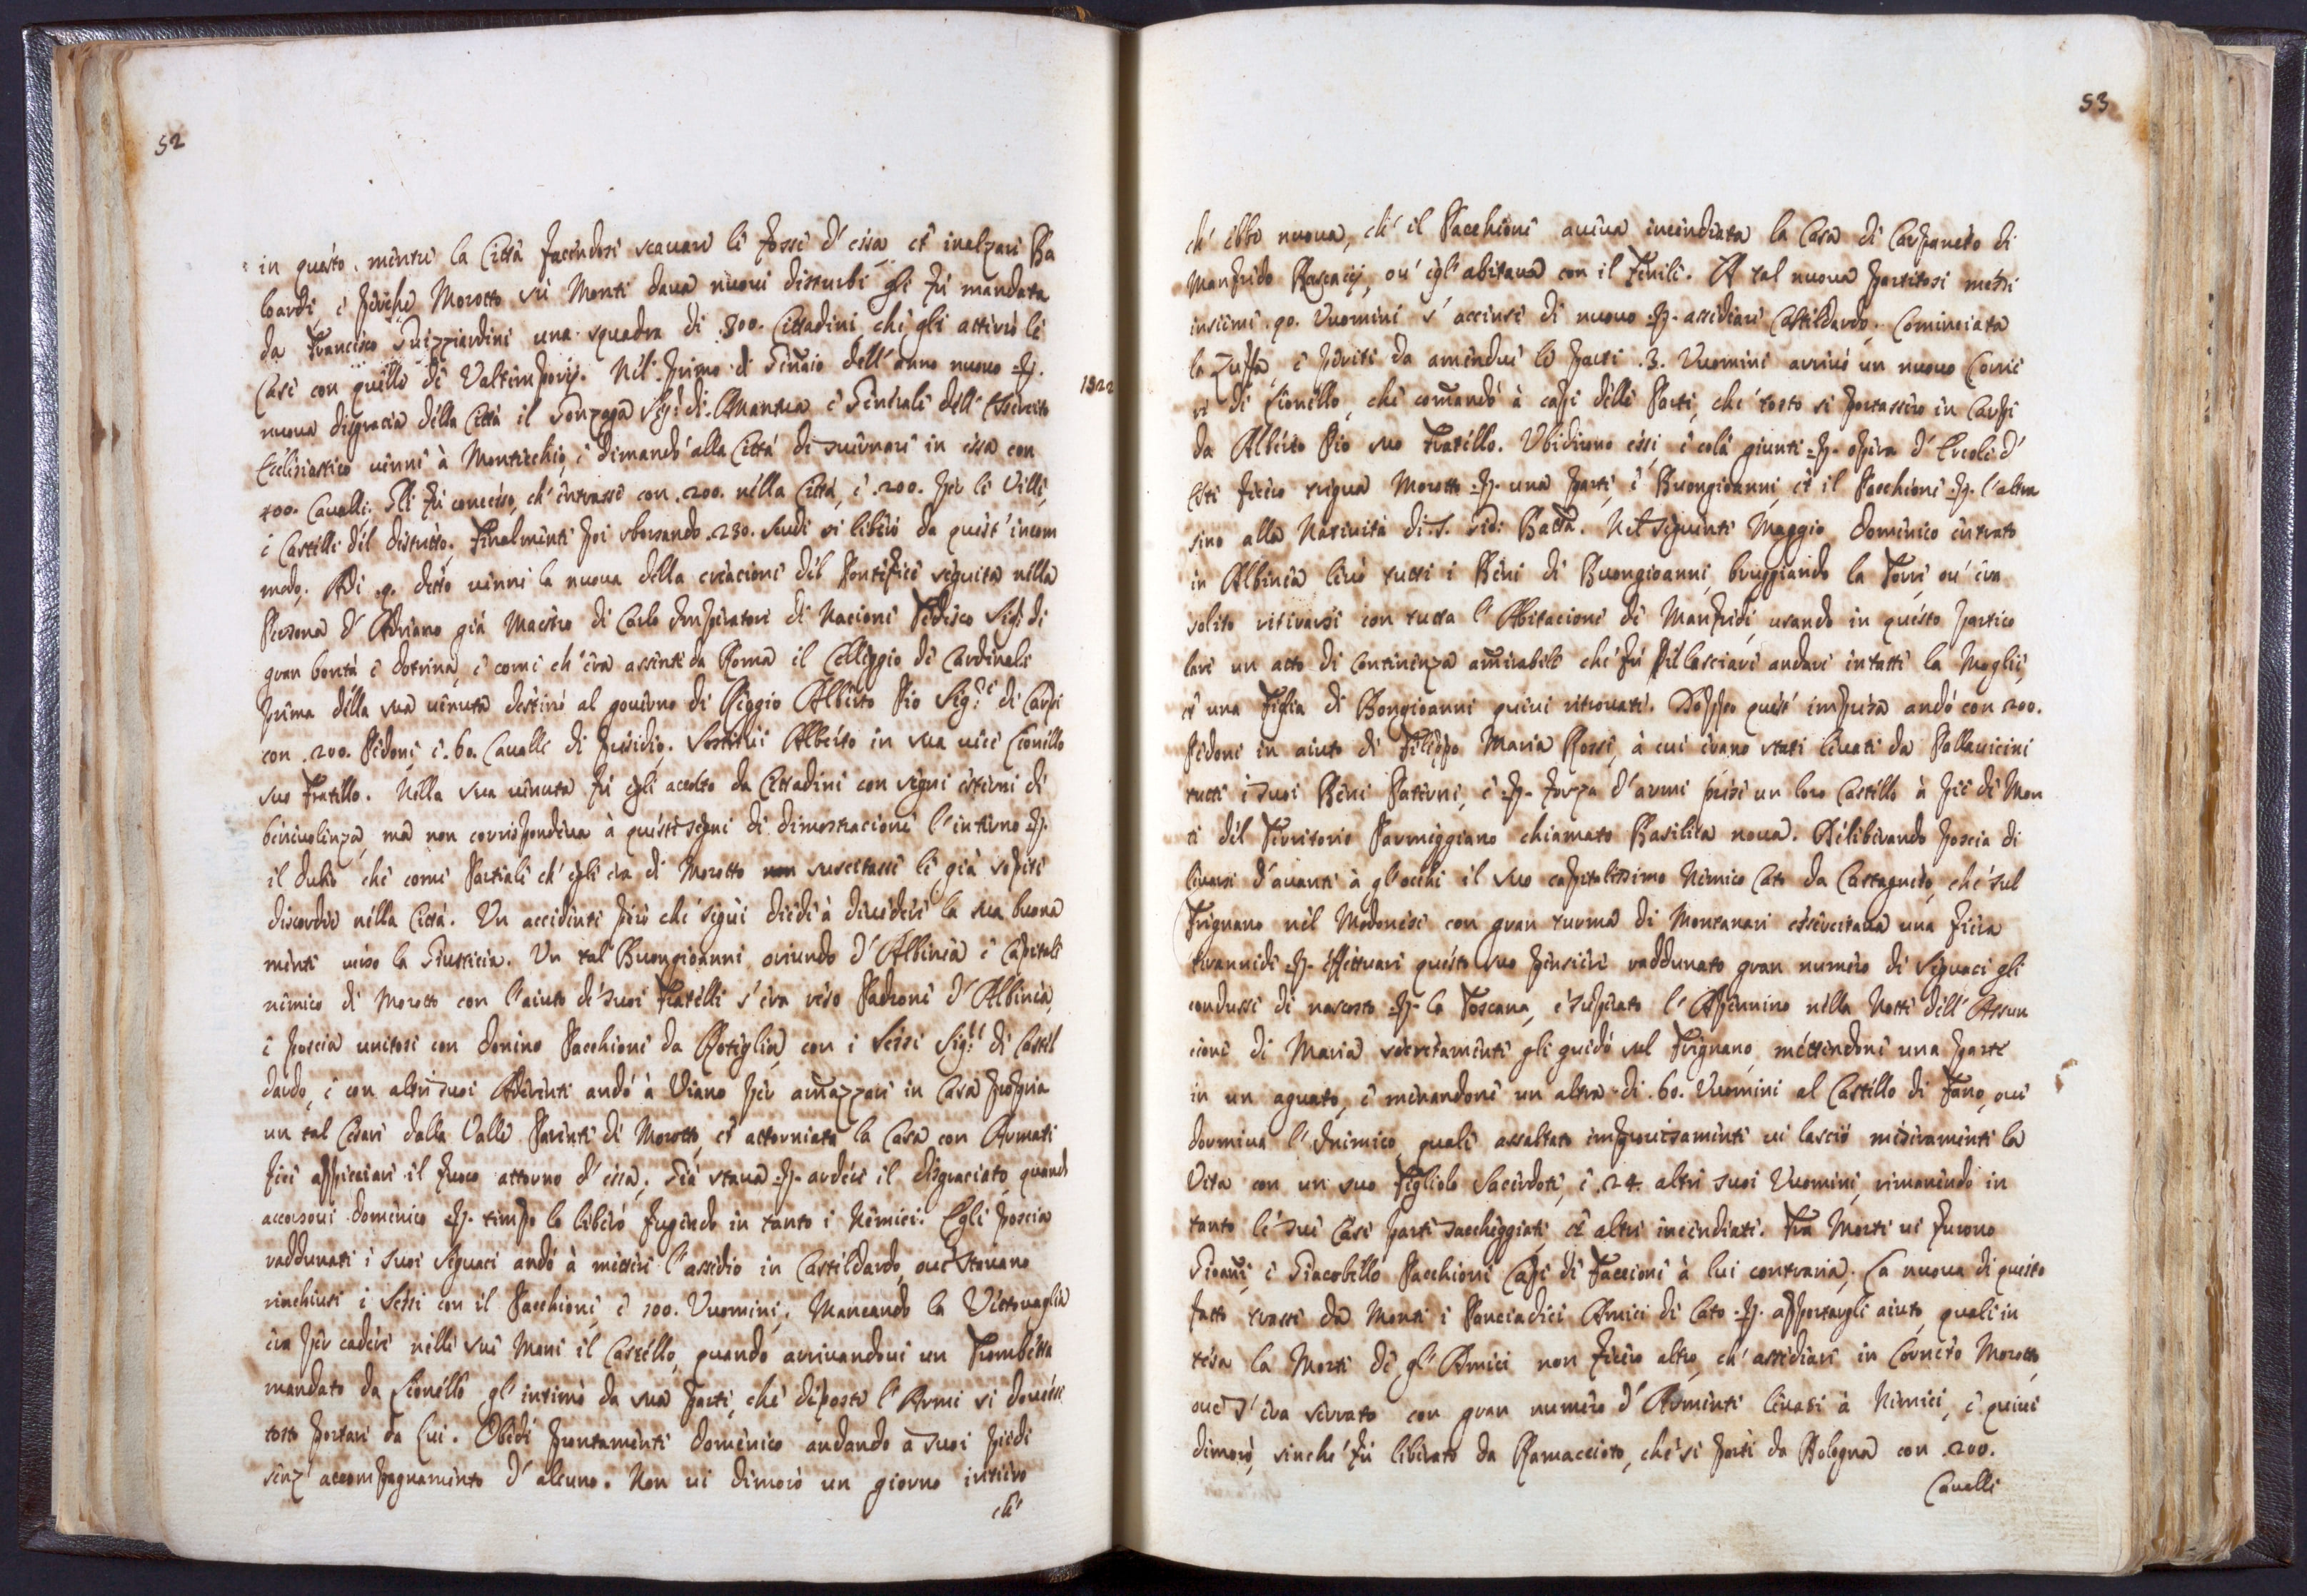 52
in questo, mentre la Città facendosi scavare le fosse d'essa, et inalzare Ba
loardi, e perche Morotto sù Monti dava nuovi disturbi gli fú mandata
da Francesco Guizziardini una squadra di 300. Cittadini che gli atterrò le
Case con quelle di Valtemporij. Nel primo di Genaio dell'anno nuovo p.
1522
nuova disgracia della Città il Gonzaga Sig.e di Mantua e Generale dell'Esercito
Eclesiastico venne à Montecchio, e dimandò alla Città di svernare in essa con
400. Cavalli. Gli fú concesso, ch'entrasse con .200. nella Città, e .200. per le Ville,
e Castelli del distretto. Finalmente poi sborsando .230. Scudi si liberò da quest'incom
modo. Adi .9. detto venne la nuova della creacione del Pontefice seguita nella
Persona d'Adriano già Maestro di Carlo Imperatore di Nacione Tedesco Sig.e di
gran bontà e dotrina, e come ch'era assente da Roma il Colleggio de Cardinali
prima della sua venuta destinò al governo di Reggio Alberto Pio Sig.re di Carpi
con .200. Pedoni, e .60. Cavalli di presidio. Sostituì Alberto in sua vece Lionello
suo Fratello. Nella sua venuta fú egli acolto da Cittadini con segni esterni di
benevolenza, mà non corrispondeva à questi segni di dimostracione l'interno p.
il dubio che come Partiale ch'egli era di Morotto non suscitasse le già sopite
discordie nella Città. Un accidente però che seguì diede à divedere la sua buona
mente verso la Giusticia. Un tal Buongioanni oriundo d'Albinea e Capitale
nemico di Morotto con l'aiuto de suoi Fratelli s'era reso Padrone d'Albinea,
e poscia unitosi con Donino Pacchioni da Rotiglia, con i Sessi Sig.ri di Castel
dardo, e con altri suoi Aderenti andò à Viano per amazzare in Casa propria
un tal Cesare dalla Valle Parente di Morotto, et attorniata la Casa con Armati
fece appicciare il fuoco attorno d'essa. Già stava p. ardere il disgraciato, quando
accorsovi Domenico p. tempo lo liberò fugendo in tanto i Nemici. Egli poscia
raddunati i suoi Seguaci andò à mettere l'assedio in Casteldardo, ove stavano
rinchiusi i Sessi con il Pacchioni, e 100. Vuomini. Mancando la Vettovaglia
era per cadere nelle sue Mani il Castello, quando arrivandovi un Trombetta
mandato da Lionello gl'intimò da sua parte, che deposte l'Armi si dovesse
tosto portare da Lui. Obedì prontamente Domenico andando a suoi piedi
senz'accompagnamento d'alcuno. Non vi dimorò un giorno intiero
che
53
ch'ebbe nuova, che il Pacchioni aveva incendiata la Casa di Carpaneto di
Manfredo, ov'egl'abitava con il Fenile. A tal nuova partitosi messi
insieme .90. Vuomini s'accinse di nuovo p. assediare Casteldardo. Cominciata
la Zuffa e periti da amendue le parti .3. Vuomini arrivò un nuovo Corrie
re di Lionello, che comandò à capi delle Parti, che tosto si portassero in Carpi
da Alberto Pio suo Fratello. Ubidirono essi, e colà giunti p. opera d'Ercole d'
Este fecero tregua Morotto p. una parte, e Buongioanni, et il Pacchioni p. l'altra
sino alla Natività di S. Gio: Batta. Nel seguente Maggio Domenico entrato
in Albinea levò tutti i Beni di Buongioanni, bruggiando la Torre, ov'era
solito ritirarsi con tutta l'Abitacione de Manfredi, usando in questo partico
lare un atto di Continenza amirabile che fú il lasciare andare intatti la Moglie,
et una Figlia di Bongioanni quivi ritrovate. Doppo quest'impresa andò con 200.
Pedoni in aiuto di Filippo Maria Rossi, à cui erano stati levati da Pallavicini
tutti i suoi Beni Paterni, e p. forza d'armi prese un loro Castello à piè de Mon
ti del Territorio Parmeggiano chiamato Basilica nova. Deliberando poscia di
levarsi d'avanti à gl'occhi il suo capitalissimo Nemico Cato da Castagneto, che sul
Frignano nel Modonese con gran turma di Montanari essercitava una fiera
tirannide p. effettuare questo suo pensiere raddunato gran numero di Seguaci gli
condusse di nascosto p. la Toscana, e superato l'Apennino nella Notte dell'Assun
cione di Maria secretamente gli guidò sul Frignano, mettendone una parte
in un aguato, e menandone un altra di .60. Vuomini al Castello di Fano, ove
dormiva l'Inimico, quale assaltato improvisamente vi lasciò miseramente la
Vita con un suo Figliolo Sacerdote, e .24. altri suoi Vuomini, rimanendo in
tanto le sue Case parte saccheggiate, et altre incendiate. Fra Morti vi furono
Gioani, e Giacobello Pacchioni Capi di Faccione à lui contraria. La nuova di questo
fatto trasse da Monti i Panciadici Amici di Cato p. apportargli aiuto, quali in
tesa la Morte de gl'Amici non fecero altro, ch'assediare in Corneto Morotto,
ove s'era serrato con gran numero d'Armenti levati à Nemici, e quivi
dimorò, sinche fú liberato da Ramaccioto, che si partì da Bologna con .200.
Cavalli